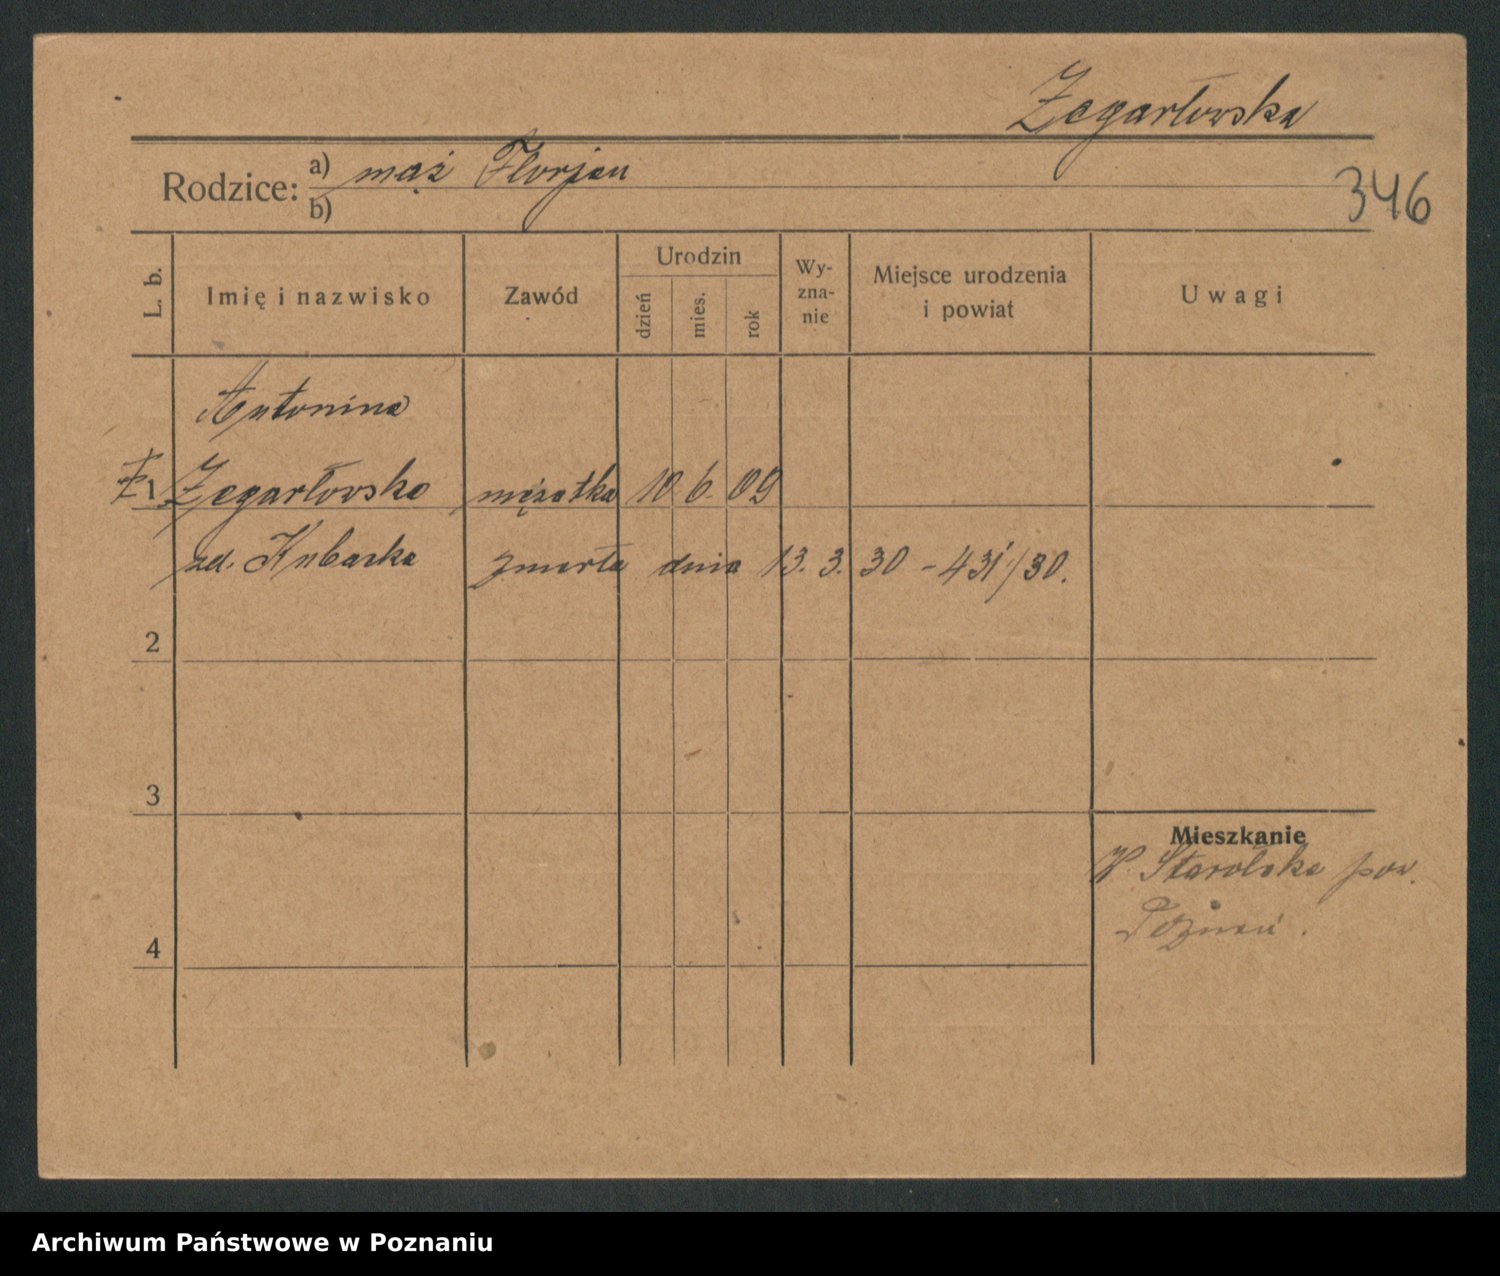 Zegartowska
Rodzice: a) mąż Florjan
b)
346
L. b.
Imię i nazwisko
Zawód
Urodzin
dzień
mies.
rok
Wy-
zna-
nie
Miejsce urodzenia
i powiat
Uwagi
Antonina
1 Zegartowska mężatka 10 6. 09
zd. Kubacka zmarła dnia 13. 3. 30 - 431/30.
2
3
4
Mieszkanie
Starołęka pow.
Poznań.
Archiwum Państwowe w Poznaniu